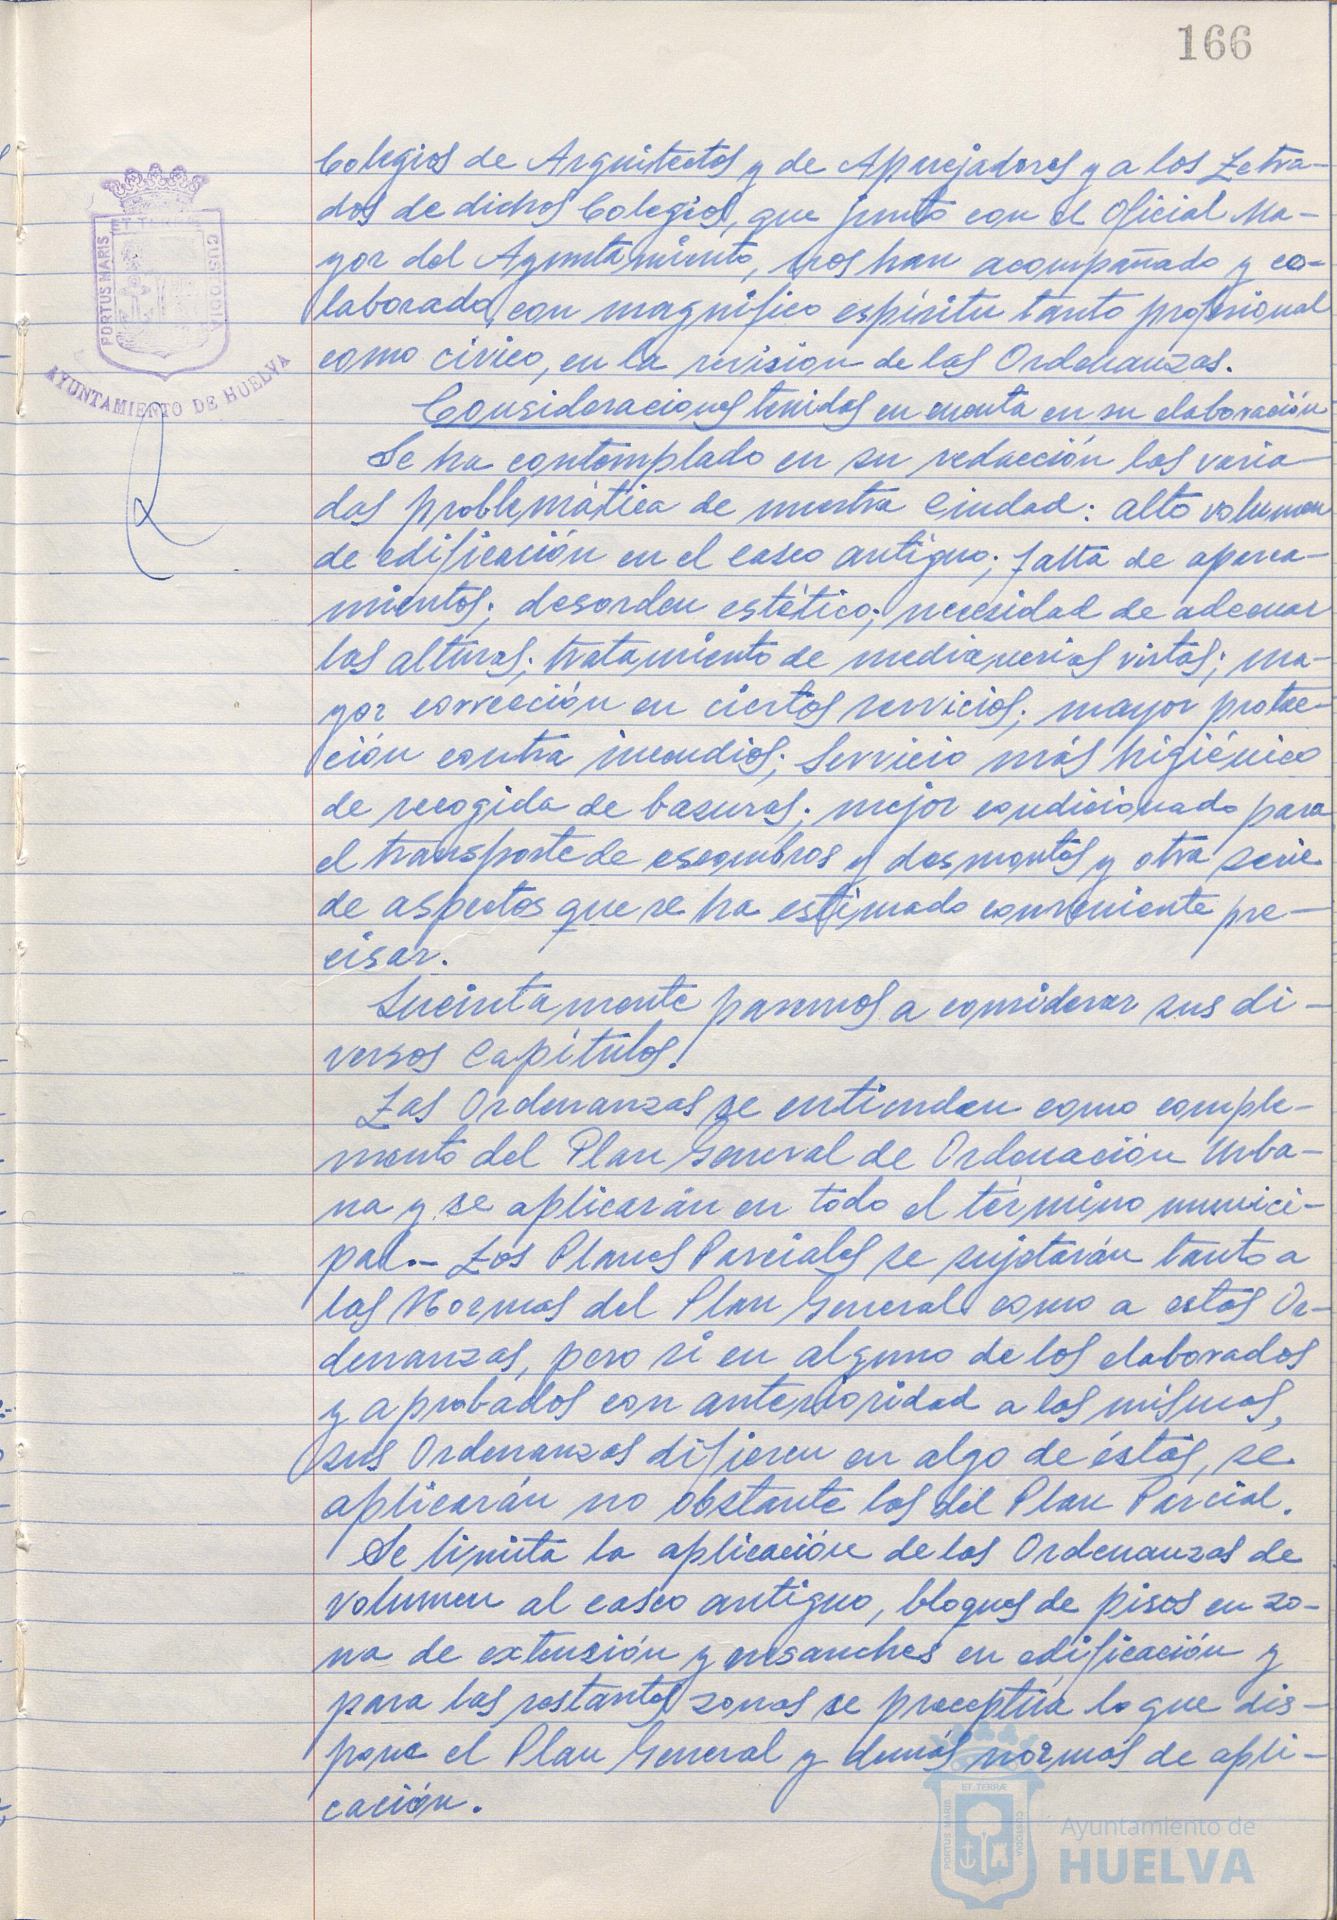 166
Colegios de Arquitectos y de Aparejadores y a los Letra-
dos de dichos Colegios, que junto con el Oficial Ma-
yor del Ayuntamiento, nos han acompañado y co-
laborado, con magnífico espíritu tanto profesional
como cívico, en la revisión de las Ordenanzas.
Consideraciones tenidas en cuenta en su elaboración
Se ha contemplado en su redacción las varia-
das problemática de nuestra Ciudad: alto volumen
de edificación en el casco antiguo; falta de aparca-
mientos; desorden estético; necesidad de adecuar
las alturas; tratamiento de medianerias vistas; ma-
yor corrección en ciertos servicios; mayor protec-
ción contra incendios; Servicio más higiénico
de recogida de basuras; mejor condicionado para
el transporte de escombros y desmontes y otra serie
de aspectos que se ha estimado conveniente pre-
cisar.
Sucintamente pasemos a considerar sus di-
versos Capítulos.
Las Ordenanzas se entienden como comple-
mento del Plan General de Ordenación Urba-
na y se aplicarán en todo el término munici-
pal.- Los Planes Parciales se sujetarán tanto a
las Normas del Plan General como a estas Or-
denanzas, pero si en alguno de los elaborados
y aprobados con anterioridad a las mismas,
sus Ordenanzas difieren en algo de éstas, se
aplicarán no obstante las del Plan Parcial.
Se limita la aplicación de las Ordenanzas de
volumen al casco antiguo, bloques de pisos en zo-
na de extensión y ensanches en edificación y
para las restantes zonas se preceptúa lo que dis-
pone el Plan General y demás normas de apli-
cación.
PORTUS MARIS
ET TERRAE
CUSTODIA
AYUNTAMIENTO DE HUELVA
ET TERRÆ
PORTUS MARIS
CUSTODIA
Ayuntamiento de
HUELVA